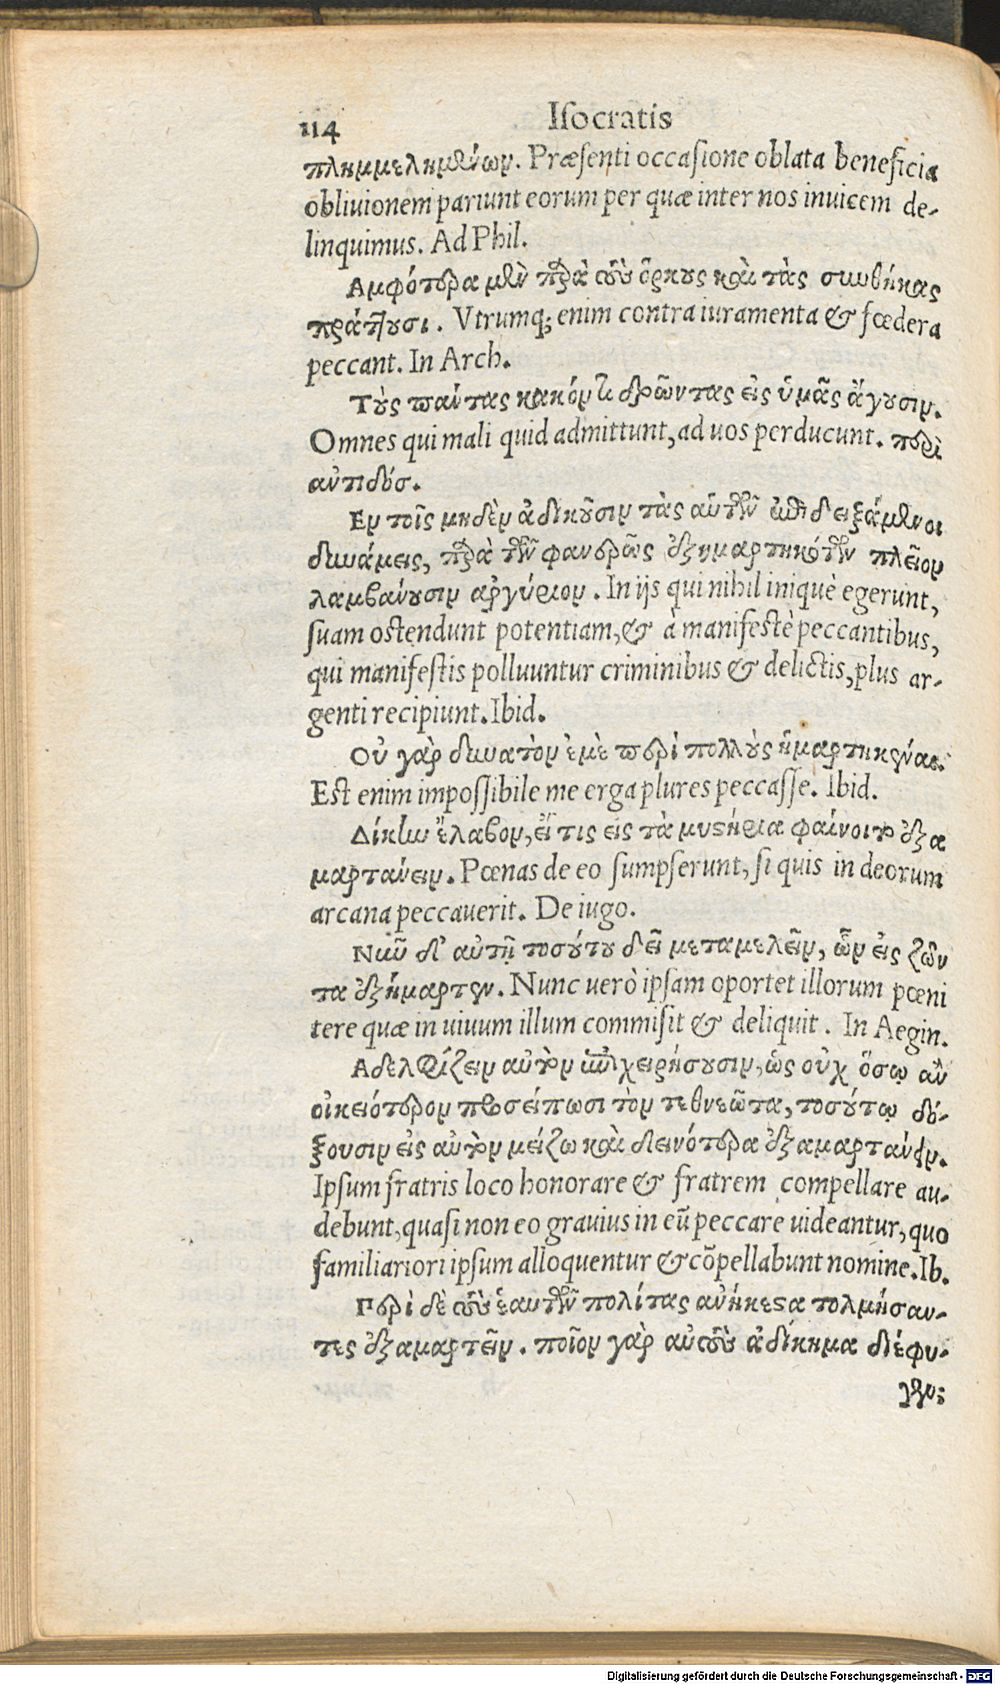 114 Isocratis
πλημμελημένων. Præsenti occasione oblata beneficia
obliuionem pariunt eorum per quæ inter nos inuicem de-
linquimus. Ad Phil.
Αμφότερα μὲν παρὰ τοὺς ὅρκους καὶ τὰς συνθήκας
πράττουσι. Vtrumq; enim contra iuramenta & fœdera
peccant. In Arch.
Τοὺς πάντας κακόν τι δρῶντας εἰς ὑμᾶς ἄγουσιν.
Omnes qui mali quid admittunt, ad uos perducunt. περὶ
ἀντιδόσ.
Εν τοῖς μηδὲν ἀδικοῦσιν τὰς αὑτῶν ἐπιδειξάμενοι
δυνάμεις, παρὰ τῶν φανερῶς ἐξημαρτηκότων πλεῖον
λαμβάνουσιν ἀργύριον. In ijs qui nihil iniquè egerunt,
suam ostendunt potentiam, & à manifestè peccantibus,
qui manifestis polluuntur criminibus & delictis, plus ar-
genti recipiunt. Ibid.
Οὐ γὰρ δυνατὸν ἐμὲ περὶ πολλοὺς ἡμαρτηκέναι.
Est enim impossibile me erga plures peccasse. Ibid.
Δίκην ἔλαβον, εἴ τις εἰς τὰ μυστήρια φαίνοιτο ἐξα
μαρτάνειν. Pœnas de eo sumpserunt, si quis in deorum
arcana peccauerit. De iugo.
Νῦν δ' αὐτῇ τοσούτου δεῖ μεταμελεῖν, ὧν εἰς ζῶν
τα ἐξήμαρτεν. Nunc uerò ipsam oportet illorum pœni
tere quæ in uiuum illum commisit & deliquit. In Aegin.
Αδελφίζειν αὐτὸν ἐπιχειρήσουσιν, ὡς οὐχ ὅσῳ ἂν
οἰκειότερον προσείπωσι τὸν τεθνεῶτα, τοσούτῳ δό-
ξουσιν εἰς αὐτὸν μείζω καὶ δεινότερα ἐξαμαρτάνειν.
Ipsum fratris loco honorare & fratrem compellare au-
debunt, quasi non eo grauius in eũ peccare uideantur, quo
familiariori ipsum alloquentur & cõpellabunt nomine. Ib.
Περὶ δὲ τοὺς ἑαυτῶν πολίτας ἀνήκεστα τολμήσαν-
τες ἐξαμαρτεῖν. ποῖον γὰρ αὐτοὺς ἀδίκημα διέφυ-
γεν;
Digitalisierung gefördert durch die Deutsche Forschungsgemeinschaft - DFG